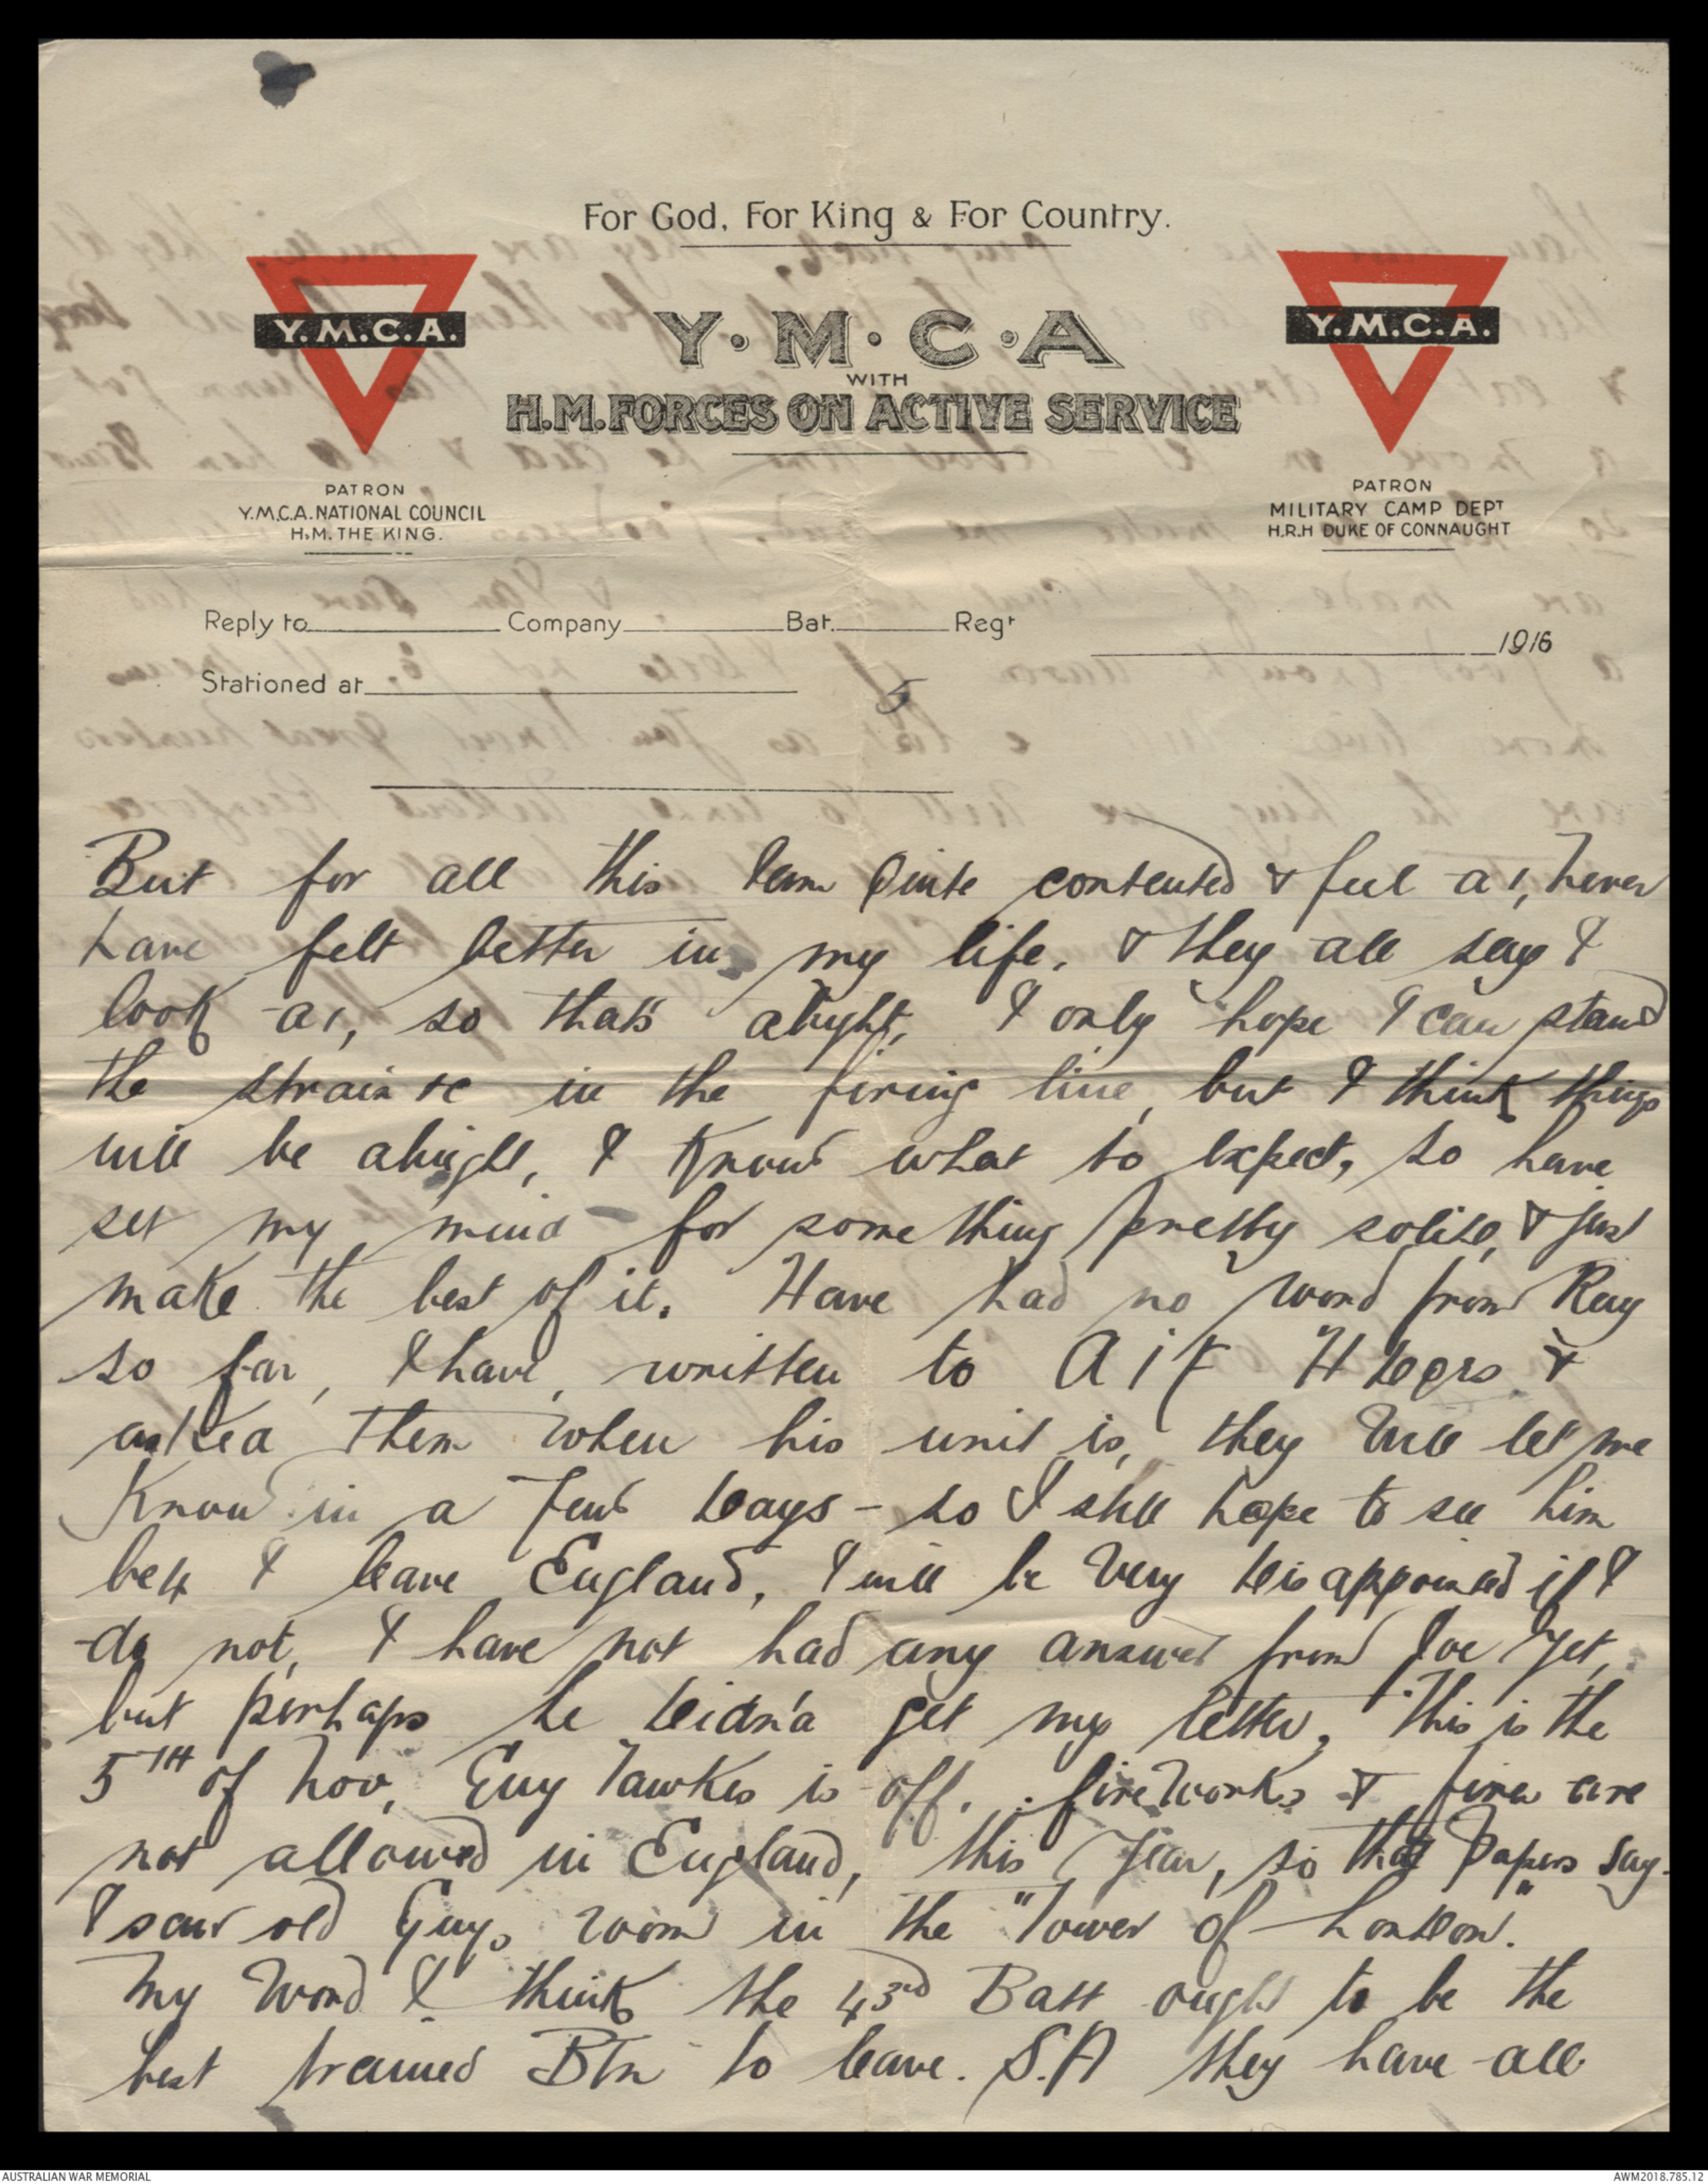 For God, For King & For Country.
Y.M.C.A.
Y.M.C.A
WITH
H.M. FORCES ON ACTIVE SERVICE
Y.M.C.A.
PATRON
Y.M.C.A. NATIONAL COUNCIL
H.M. THE KING.
PATRON
MILITARY CAMP DEPT
H.R.H DUKE OF CONNAUGHT
Reply to Company Bat. Regt
1916
Stationed at
5
But for all this I am Quite contented & feel a1, never
have felt better in my life, & they all say I
look a1, so thats alright, I only hope I can stand
the strain &c in the firing line, but I think things
will be alright, I know what to expect, so have
set my mind for something pretty solid, & just
make the best of it. Have had no word from Ray
so far, I have, written to A I F H Dqrs &
asked them when his unit is, they will let me
know in a few days - so I still hope to see him
be4 I leave England, I will be very disappointed if I
do not, I have not had any answer from Joe yet,
but perhaps he didn'a get my letter, This is the
5TH of Nov, Guy Fawkes is off. fireworks & fires are
not allowed in England, this year, so the Papers say.
I saw old Guys room in the "Tower of London".
My word I think the 43rd Batt ought to be the
best trained Btn to leave. S.A they have all
AUSTRALIAN WAR MEMORIAL
AWM2018.785.12